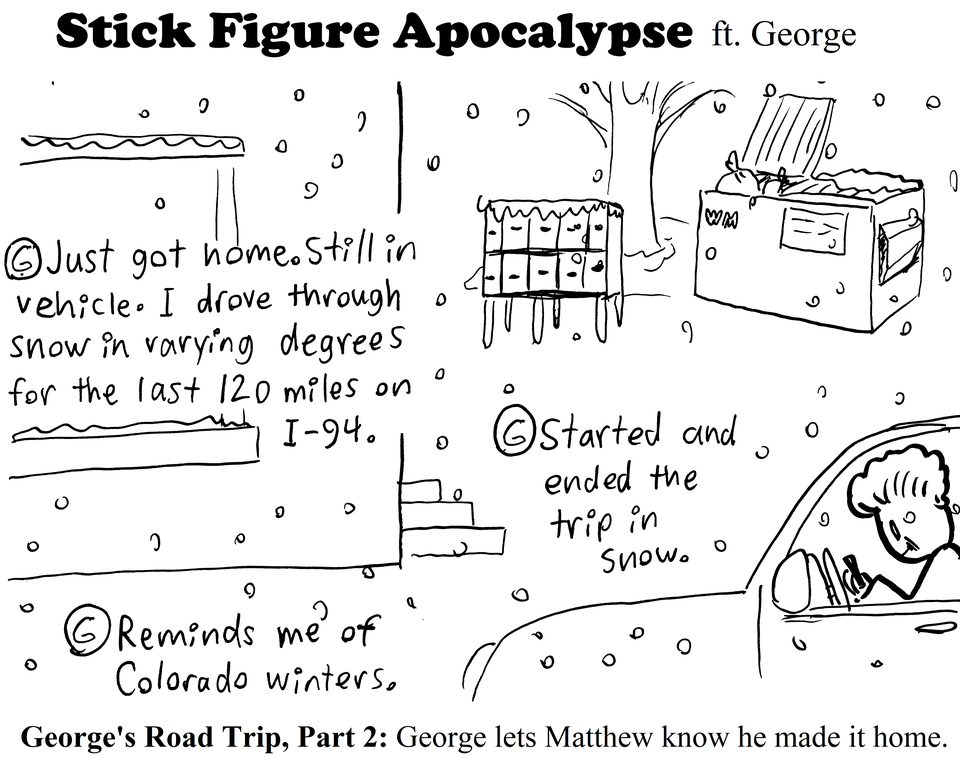 Stick Figure Apocalypse ft. George
WM
Ⓖ Just got home. Still in
vehicle. I drove through
snow in varying degrees
for the last 120 miles on
I-94.
Ⓖ Started and
ended the
trip in
snow.
Ⓖ Reminds me of
Colorado winters.
George's Road Trip, Part 2: George lets Matthew know he made it home.